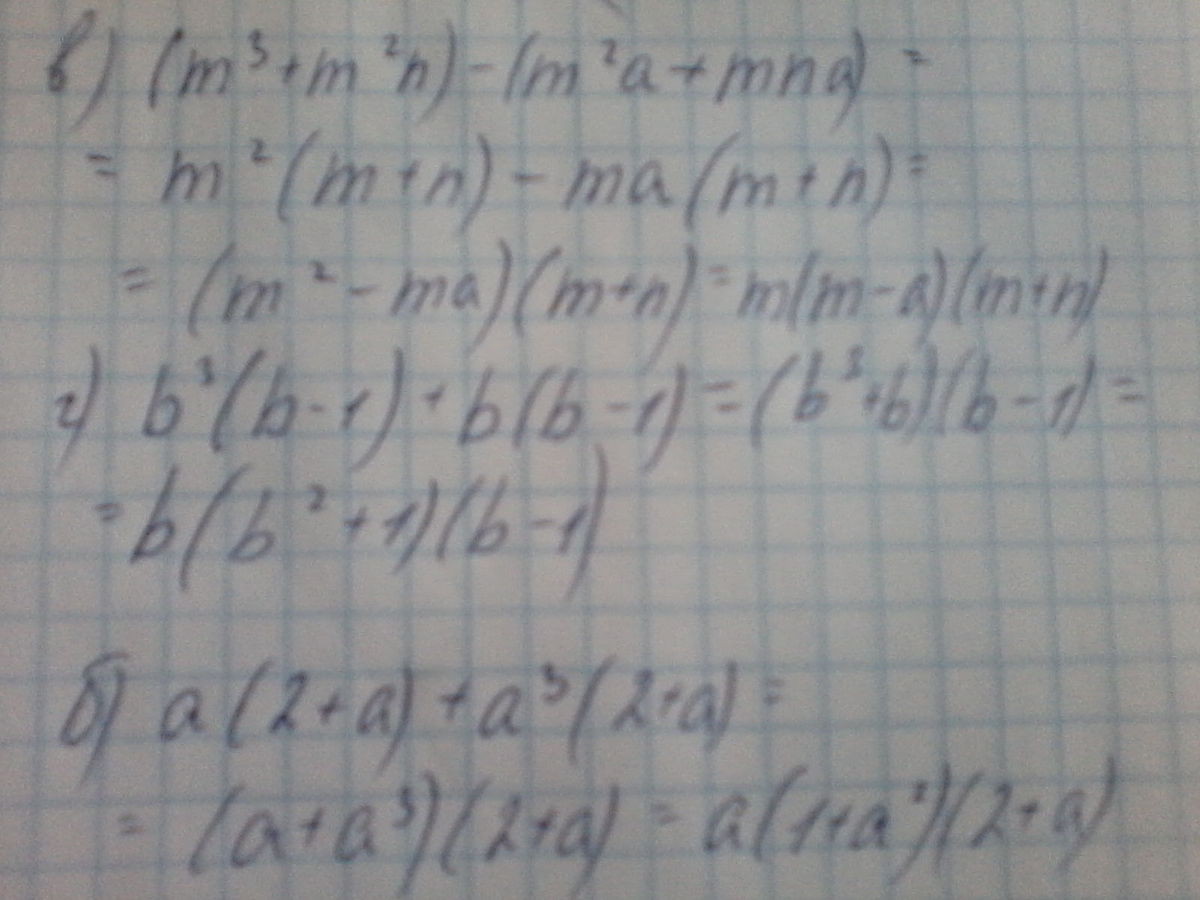 в) (m³+m²n)-(m²a+mna)=
= m²(m+n)-ma(m+n)=
= (m²-ma)(m+n)=m(m-a)(m+n)
г) b³(b-1)+b(b-1)=(b³+b)(b-1)=
=b(b²+1)(b-1)
б) a(2+a)+a³(2+a)=
= (a+a³)(2+a)=a(1+a²)(2+a)